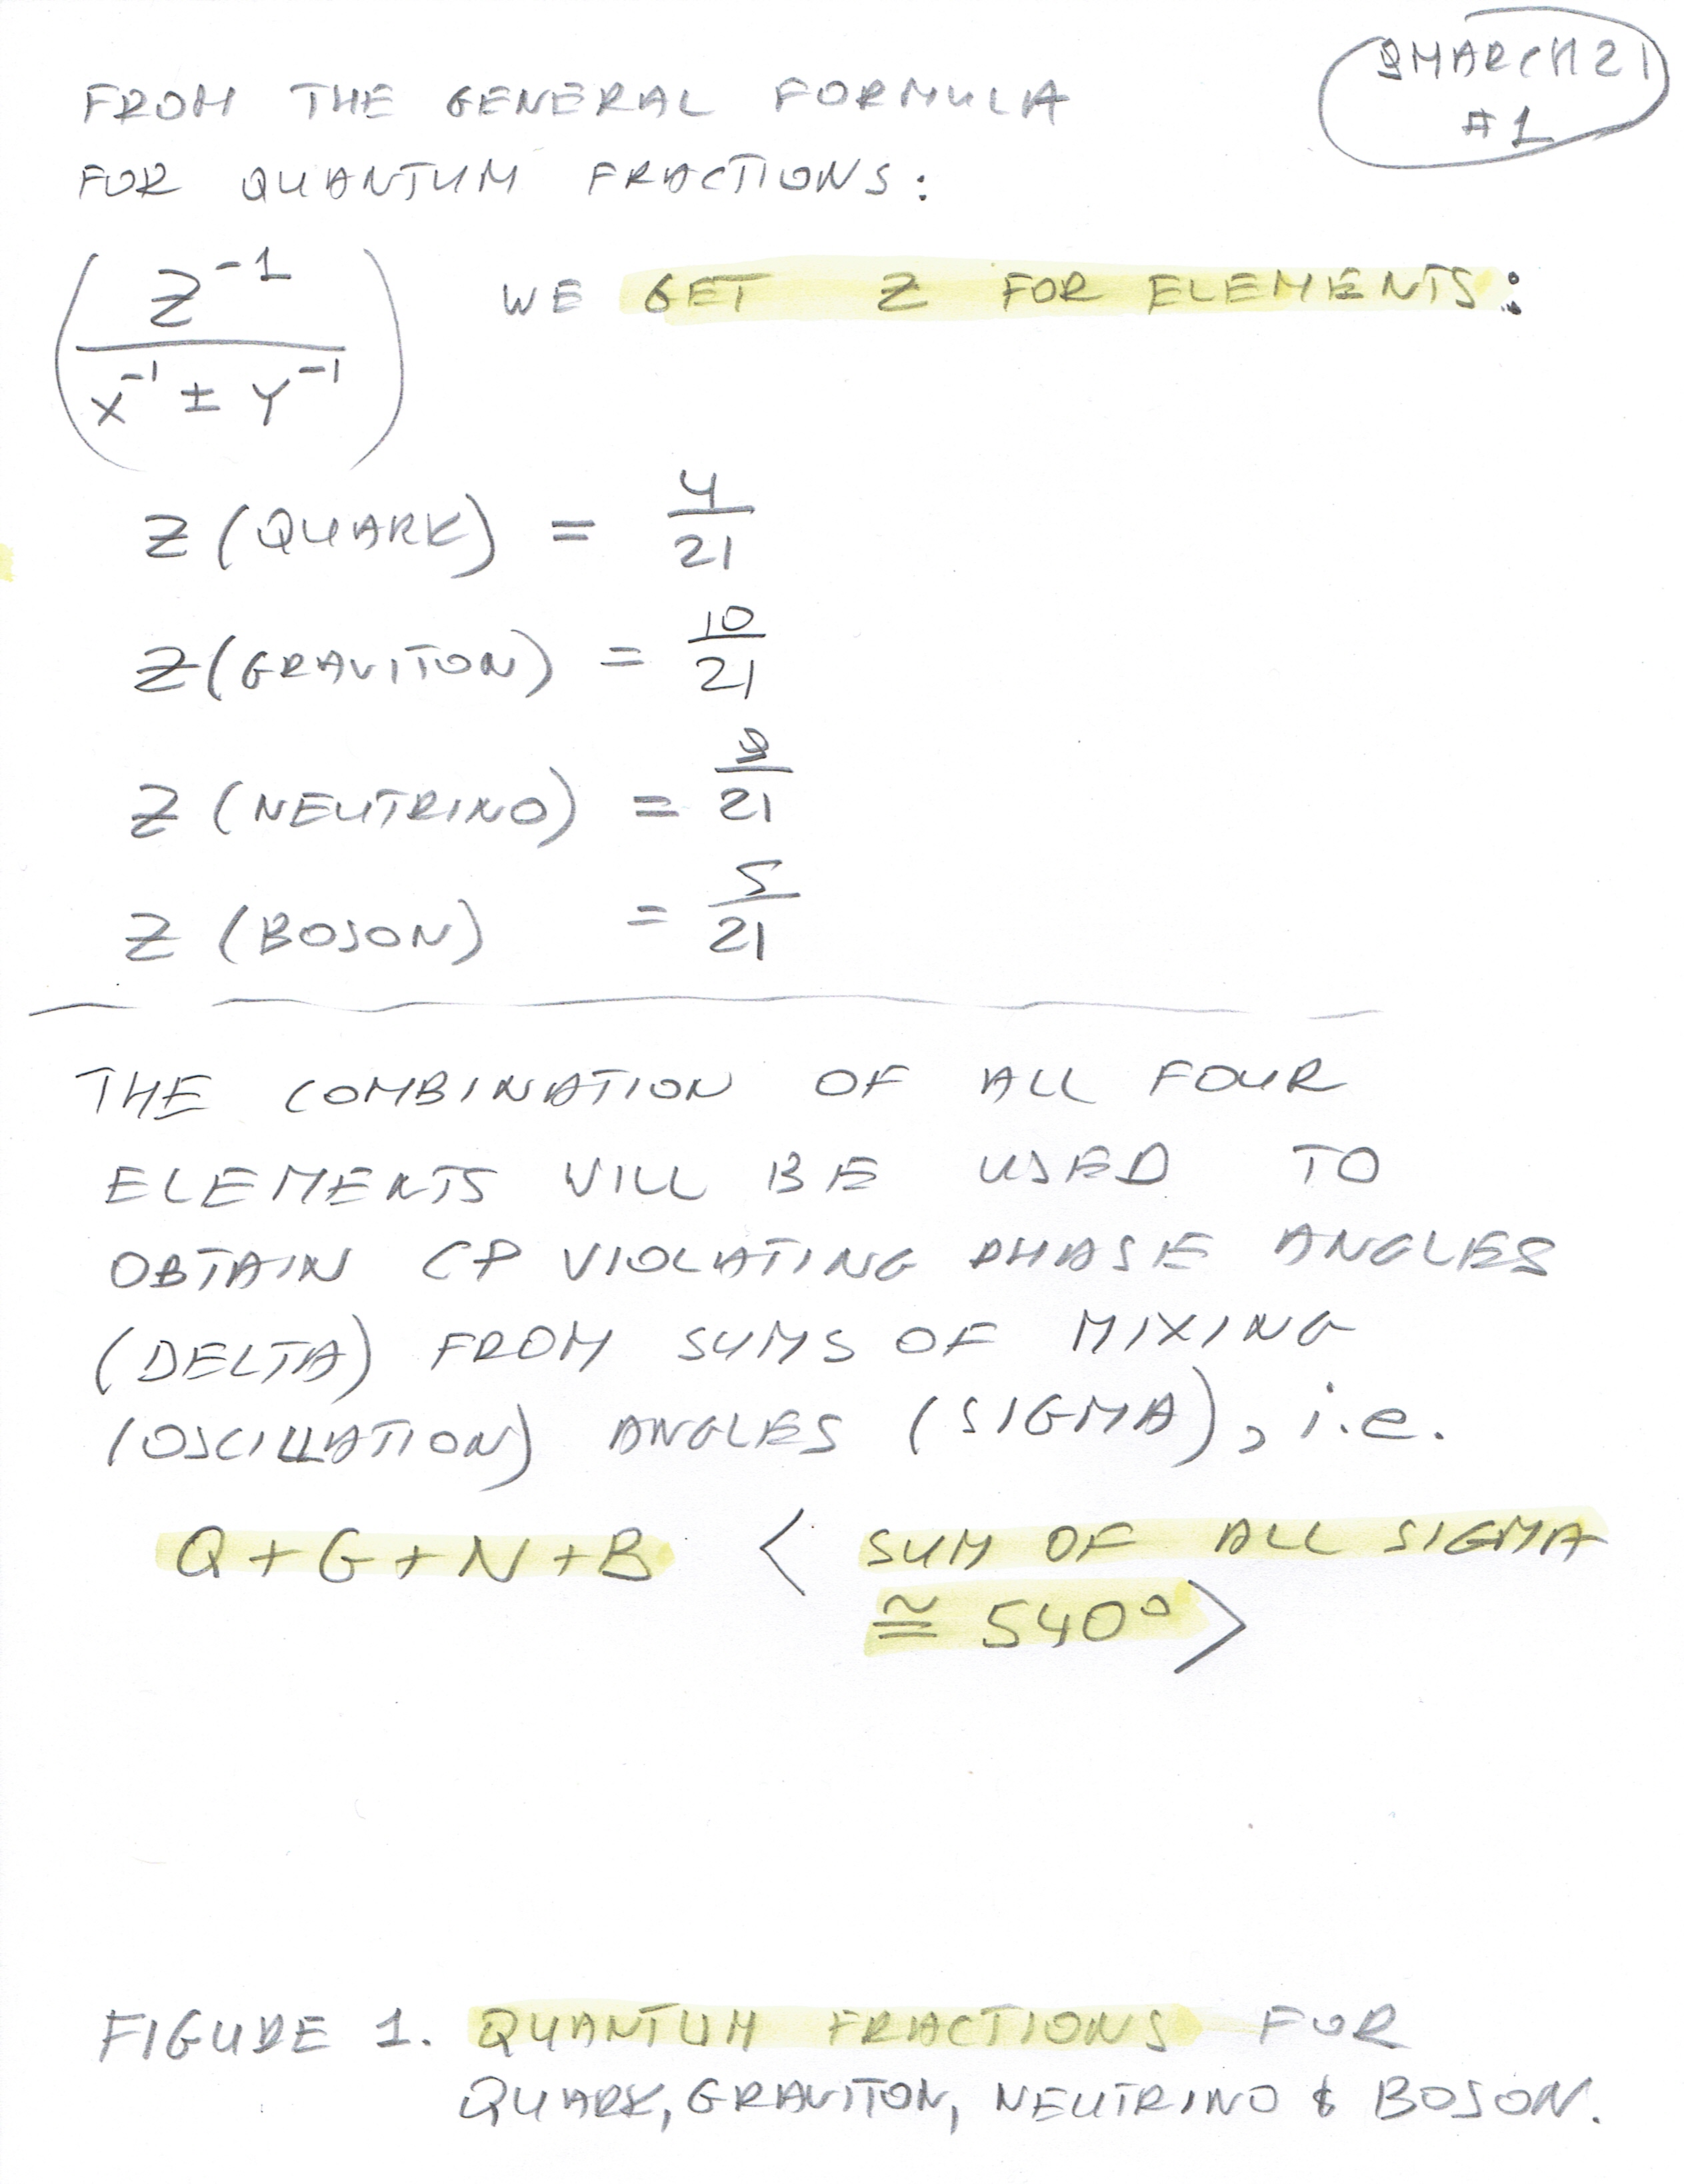 9MARCH21
#1
FROM THE GENERAL FORMULA
FOR QUANTUM FRACTIONS:
(Z⁻¹ / X⁻¹ ± Y⁻¹) WE GET Z FOR ELEMENTS:
Z (QUARK) = 4/21
Z (GRAVITON) = 10/21
Z (NEUTRINO) = 9/21
Z (BOSON) = 5/21
THE COMBINATION OF ALL FOUR
ELEMENTS WILL BE USED TO
OBTAIN CP VIOLATING PHASE ANGLES
(DELTA) FROM SUMS OF MIXING
(OSCILLATION) ANGLES (SIGMA), i.e.
Q+G+N+B < SUM OF ALL SIGMA
≅ 540° >
FIGURE 1. QUANTUM FRACTIONS FOR
QUARK, GRAVITON, NEUTRINO & BOSON.